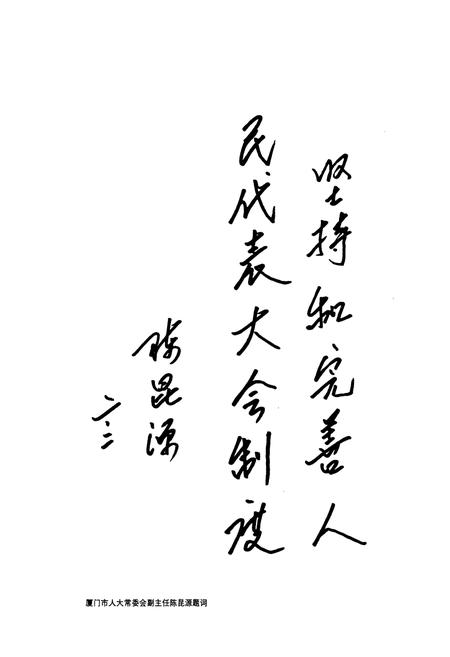 坚持和完善人
民代表大会制度
陈昆源
厦门市人大常委会副主任陈昆源题词